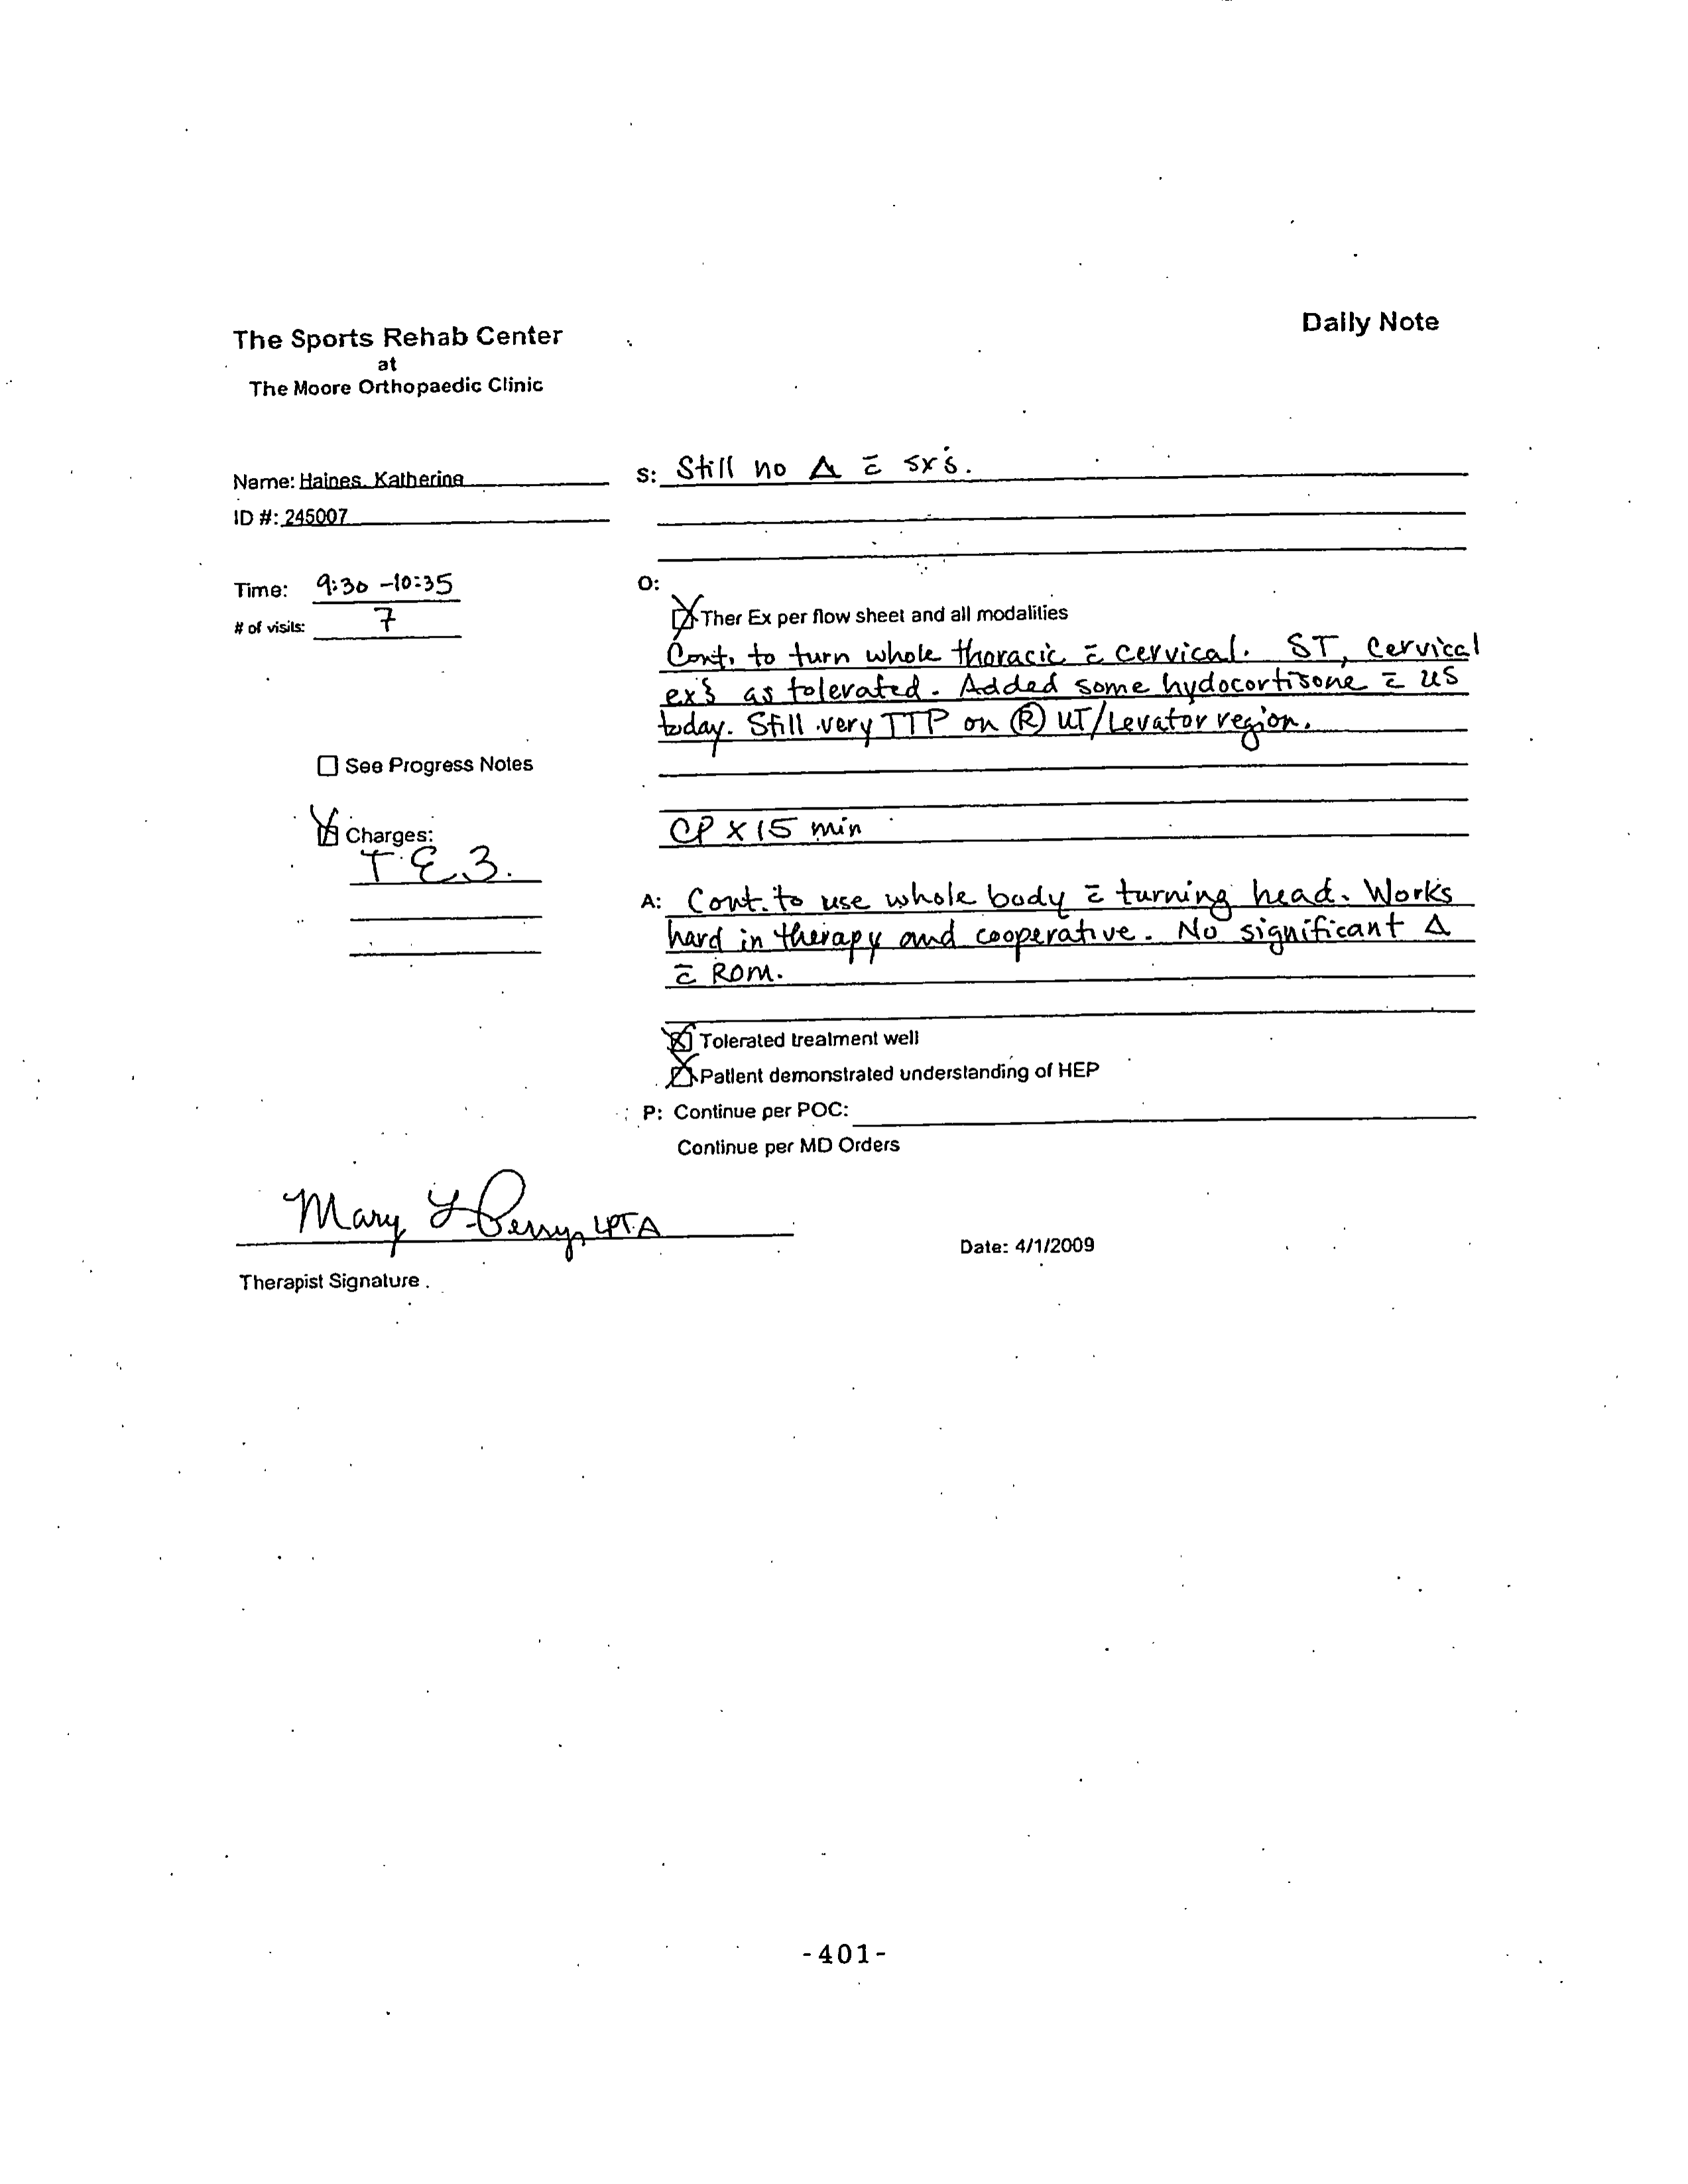 The Sports Rehab Center
at
The Moore Orthopaedic Clinic
Daily Note
Name: Haines, Katherine
ID #: 245007
Time: 9:30 -10:35
# of visits: 7
☐ See Progress Notes
☒ Charges:
T.E 3.
S: Still no Δ c̄ sx's.
O:
☒ Ther Ex per flow sheet and all modalities
Cont. to turn whole thoracic c̄ cervical. ST, cervical
ex's as tolerated. Added some hydocortisone c̄ US
today. Still very TTP on Ⓡ UT/Levator region.
CP x 15 min
A: Cont. to use whole body c̄ turning head. Works
hard in therapy and cooperative. No significant Δ
c̄ ROM.
☒ Tolerated treatment well
☒ Patient demonstrated understanding of HEP
P: Continue per POC:
Continue per MD Orders
Mary L Perry, LPTA
Therapist Signature
Date: 4/1/2009
-401-